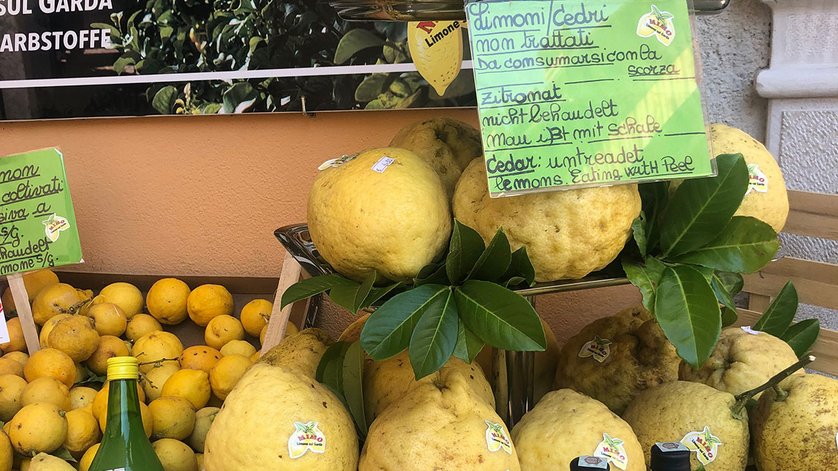 SUL GARDA
ARBSTOFFE
Limone
Limoni/Cedri
non trattati
Da consumarsi con la
scorza
Zitronat
nicht behaudelt
Mau ißt mit schale
Cedar: untreadet
lemons Eating with Peel
MIMO
mon
coltivati
siva a
S/G.
haudelt
mome S/G.
MIMO
MIMO
MIMO
MIMO